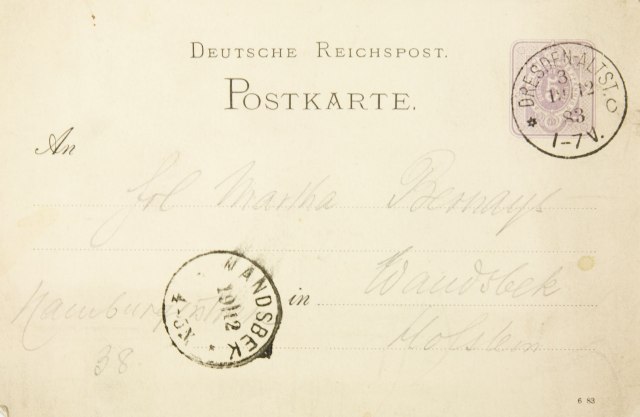 DEUTSCHE REICHSPOST.
POSTKARTE.
DRESDEN-ALTST.
3
19 12
83
1-7 V.
An
Frl Martha Bernays
in Wandsbek
Hamburgerstr
38
Holstein
WANDSBEK
19/12
4-5N
6 83